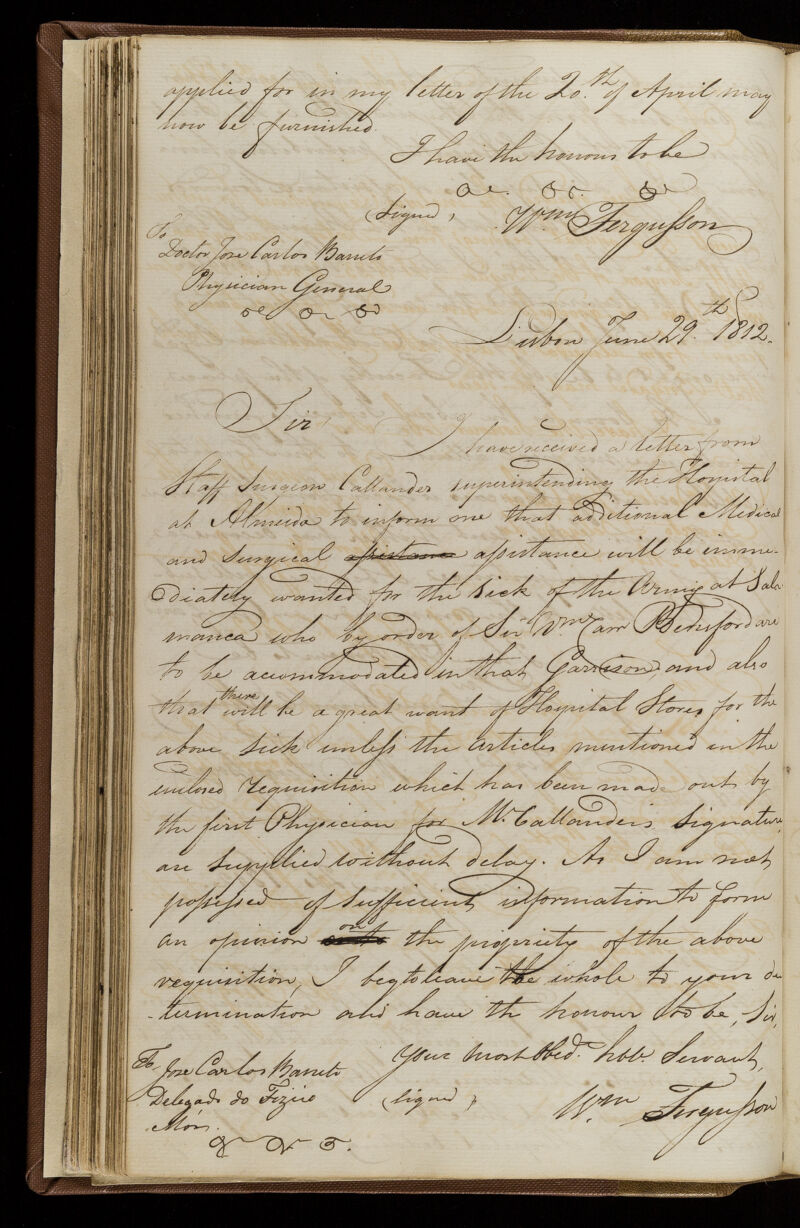 applied for in my letter of the 20.th of April may
now be furnished.
I have the honour to be
&c. &c. &c
(signed, Wm Fergusson
To
Doctor Jose Carlos Barreto
Physician General
&c &c &c
Lisbon June 29.th 1812.
Sir, I have received a letter from
Staff Surgeon Callander superintending the Hospital
at Almeida to inform me that additional Medical
and Surgical assistance assistance will be imme-
diately wanted for the sick of the Army at Sala
manca who by order of Sir Wm. Carr Beresford are
to be accommodated in that Garrison and also
that there will be a great want of Hospital Stores for the
above sick unless the articles mentioned in the
enclosed requisition which has been made out by
the first Physician for Mr. Callander's signature,
are supplied without delay. As I am not
possessed of sufficient information to form
an opinion on the propriety of the above
requisition, I beg to leave the whole to your de
-termination and have the honour to be, Sir,
Your most Obed.t hble. Servant,
(signed, Wm. Fergusson
To, Jose Carlos Barreto
Delegado do Fizico
Mór.
&c &c &c.